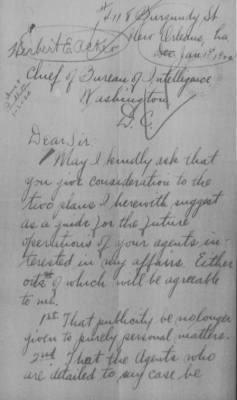 Burgundy St
New Orleans, La
Jan 1st
Herbert E.
Chief of Bureau of Intellegence
Washington
D. C.
Dear Sir:
May I kindly ask that
you give consideration to the
two plans I herewith suggest
as a guide for the future
operations of your agents in-
terested in my affairs. Either
of which will be agreeable
to me.
1st That publicity be no longer
given to purely personal matters.
2nd That the Agents who
are detailed to my case be